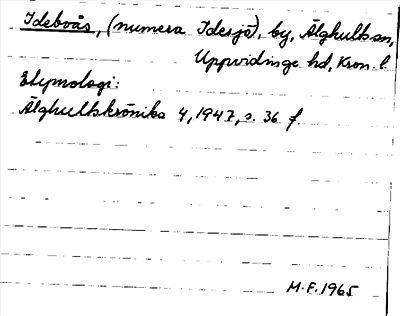 Ideboås, (numera Idesjö), by, Älghults sn,
Uppvidinge hd, Kron. l.
Etymologi:
Älghultskrönika 4, 1947, s. 36 f.
M.F. 1965